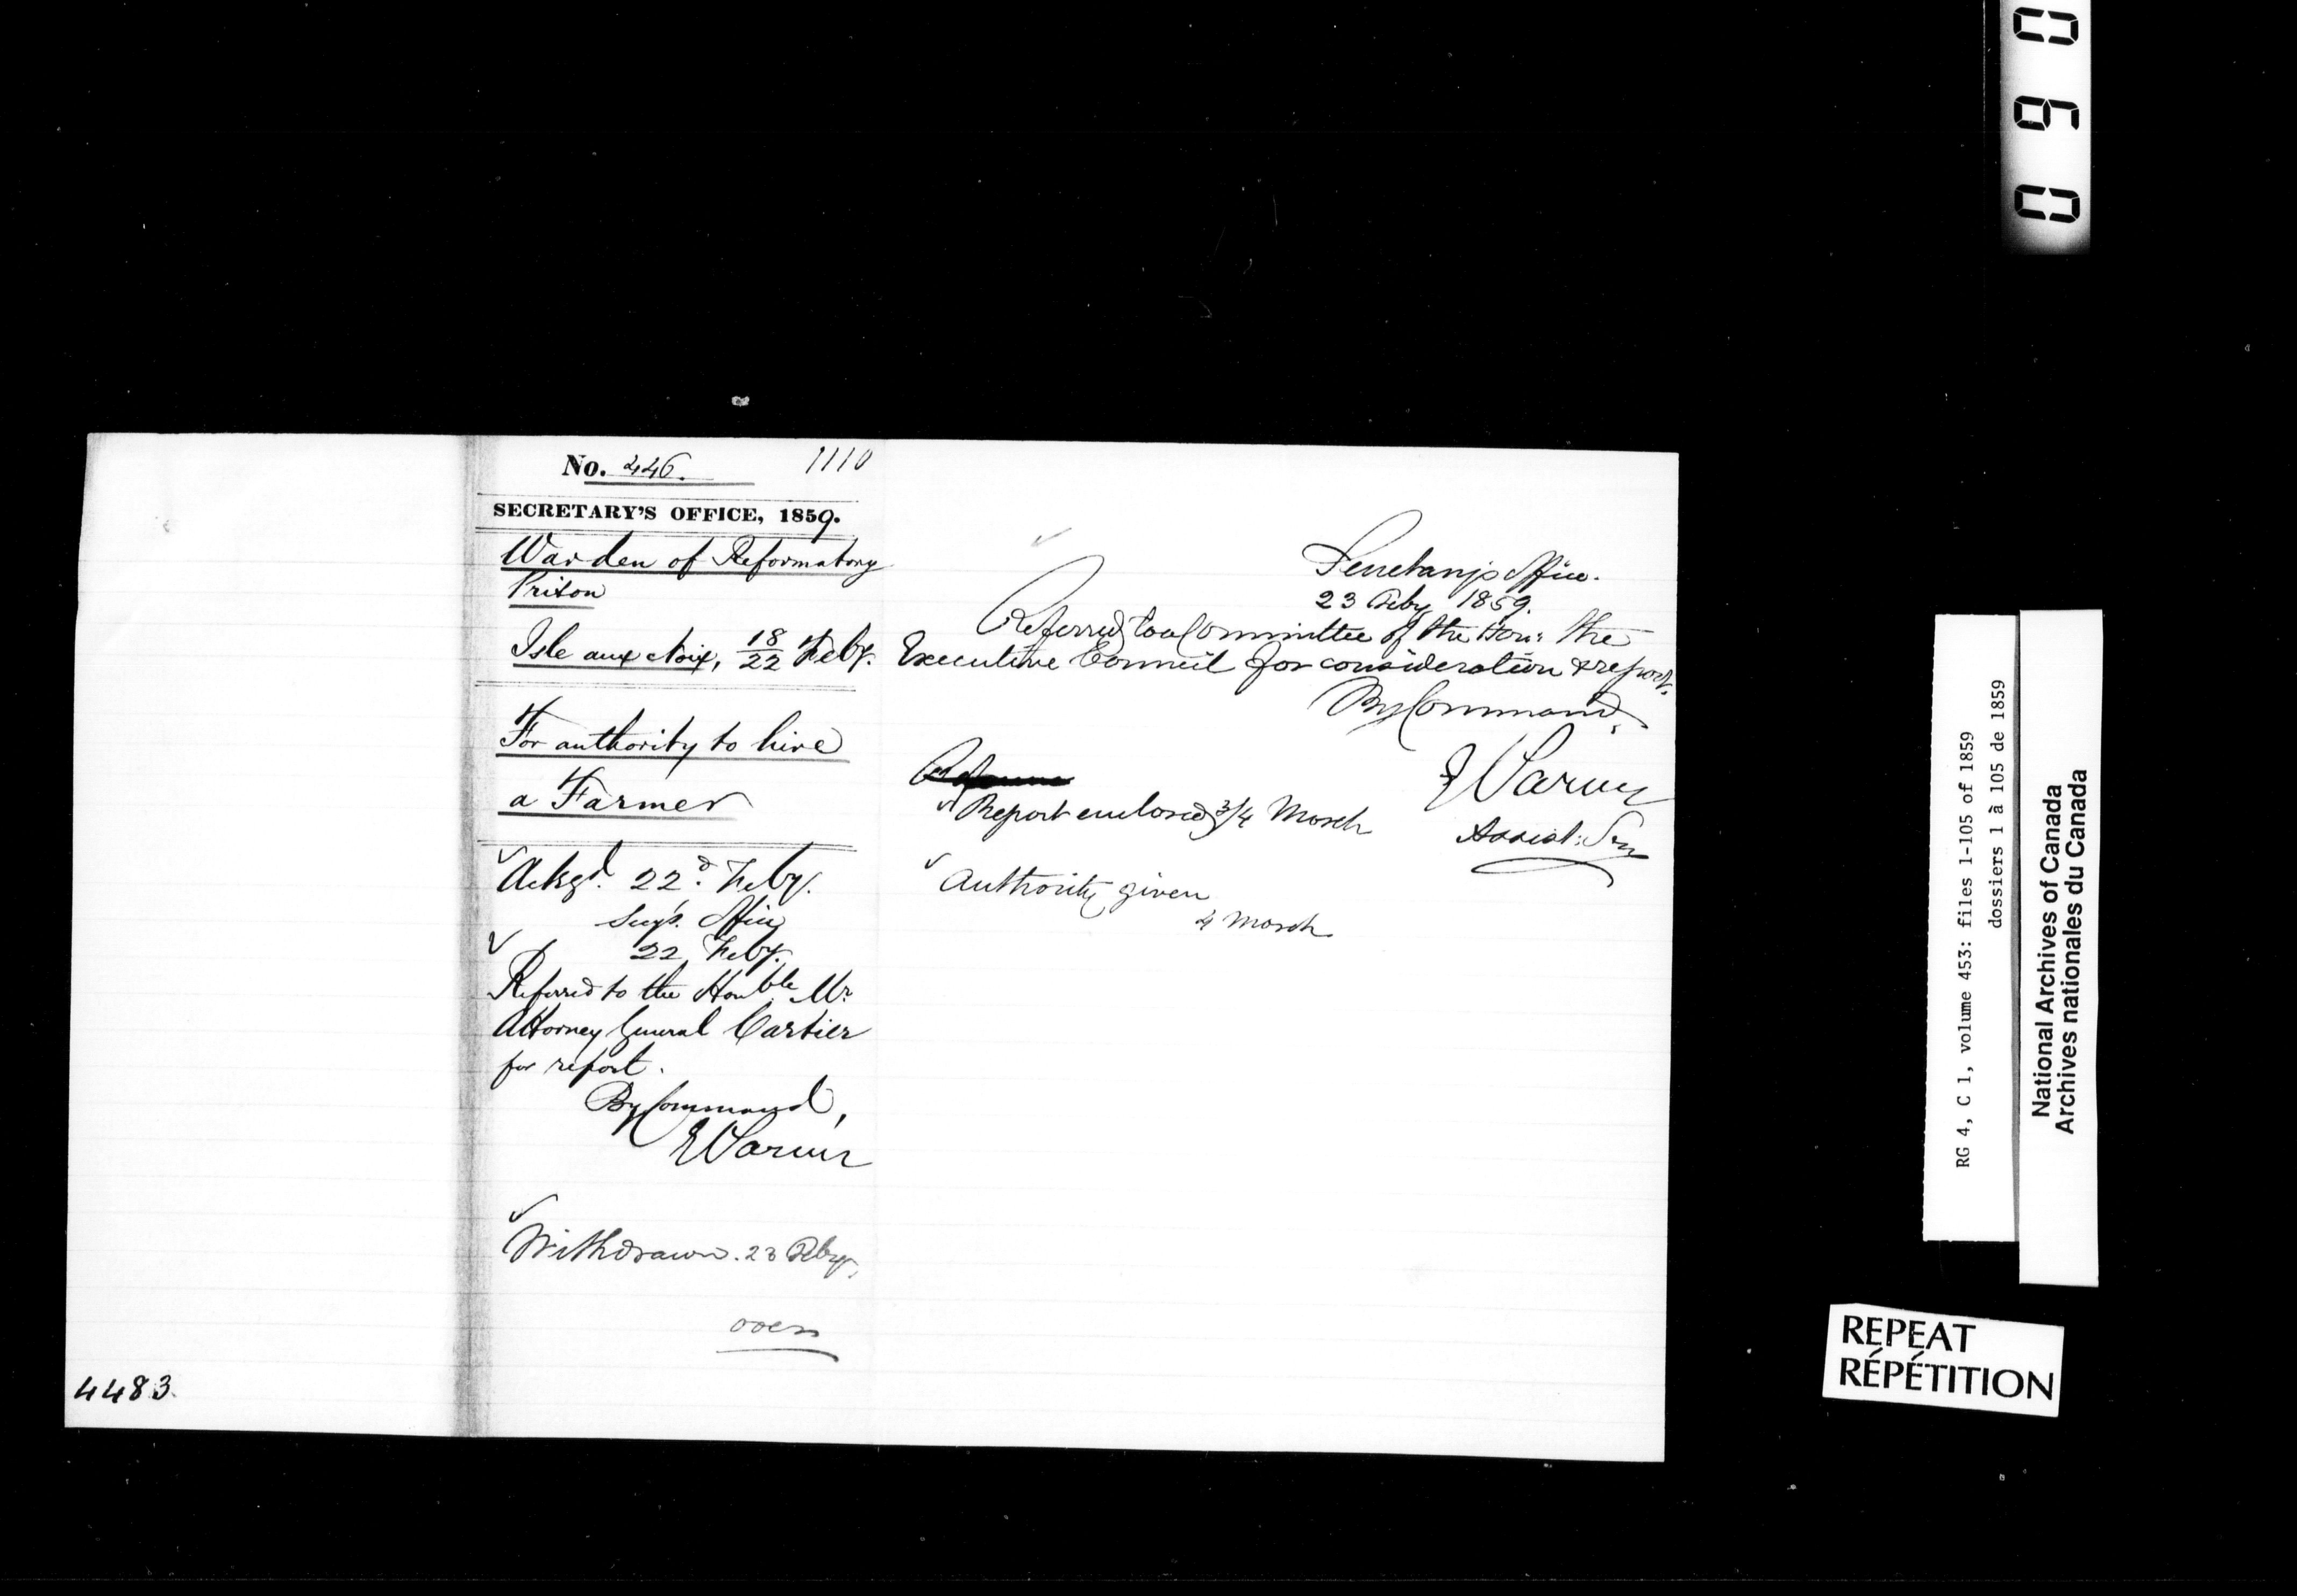 No. 446. 1110
SECRETARY'S OFFICE, 1859.
Warden of Reformatory
Prison
Isle aux Noix, 18/22 Feby.
For authority to hire
a Farmer
Ackgd. 22d. Feby.
Secy's. Office
22 Feby.
Referred to the Honble Mr
Attorney General Cartier
for report.
By Command,
Withdrawn. 23 Feby.
over
4483.
Secretary's Office.
23 Feby 1859.
Referred to a Committee of the Hon: the
Executive Council for consideration & report.
By Command,
Assist: Sey
Report enclosed 3/4 March
Authority given
4 March
090
RG 4, C 1, volume 453: files 1-105 of 1859
dossiers 1 à 105 de 1859
National Archives of Canada
Archives nationales du Canada
REPEAT
RÉPÉTITION